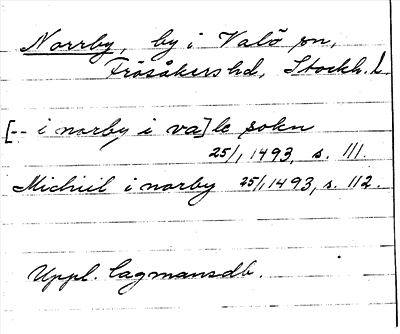 Norrby, by i Valö sn,
Frösåkers hd, Stockh. l.
[-- i norby i va]le sokn
25/1 1493, s. 111.
Michiil i norby 25/1 1493, s. 112.
Uppl. lagmansdb.